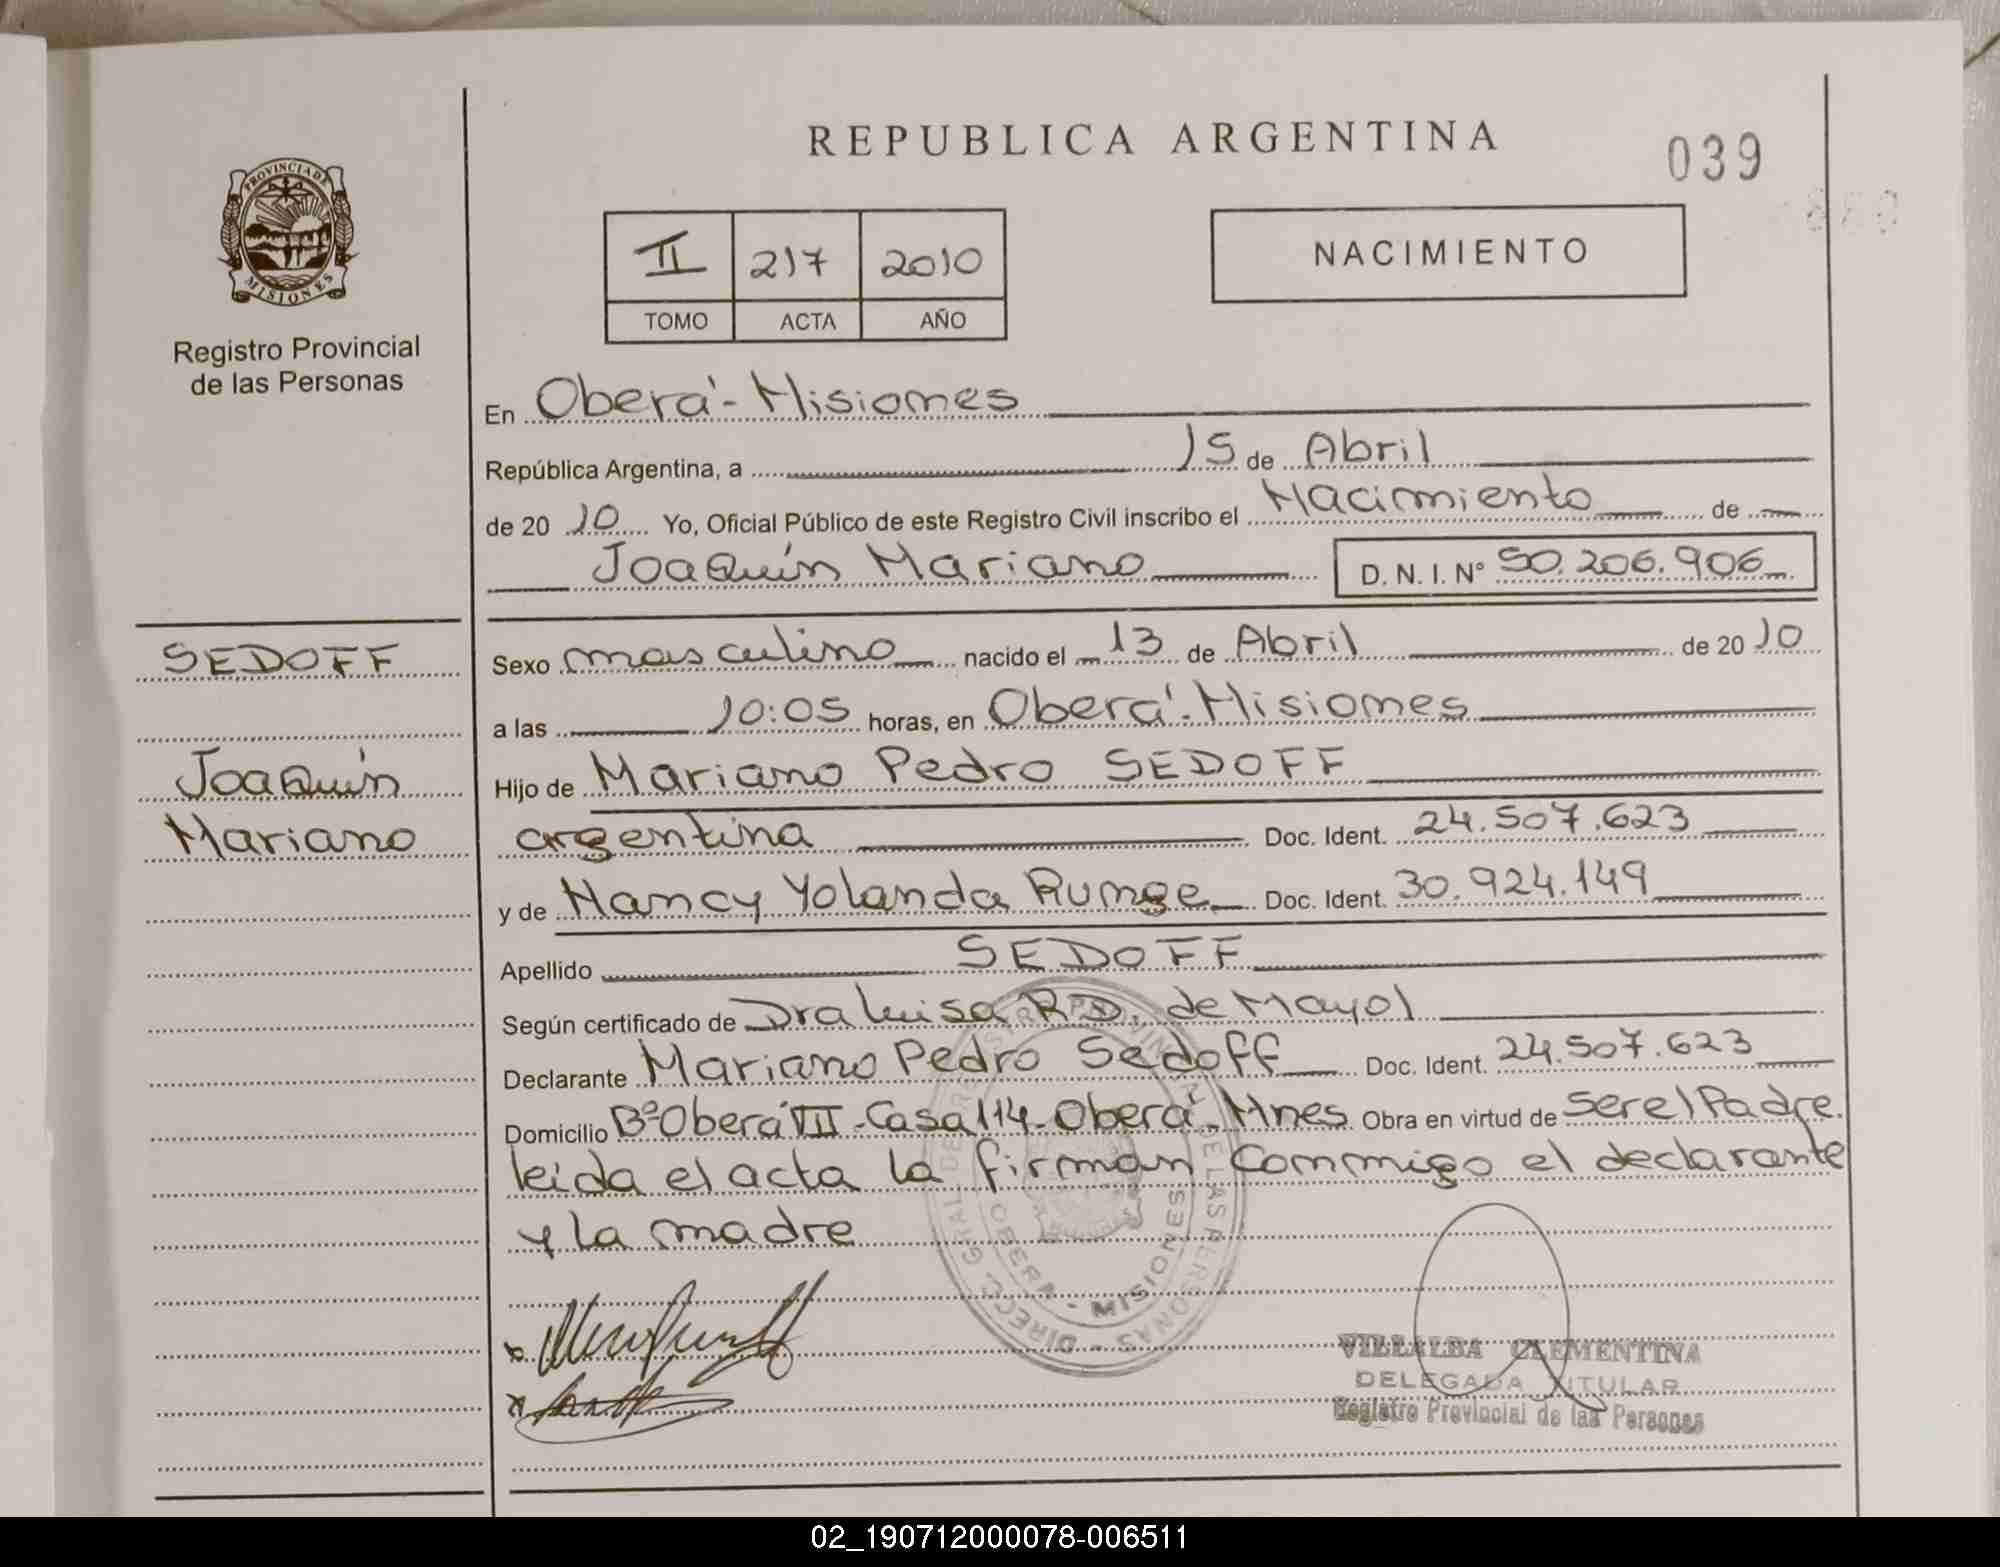 REPUBLICA ARGENTINA
039
PROVINCIA DE
MISIONES
Registro Provincial
de las Personas
II 217 2010
TOMO ACTA AÑO
NACIMIENTO
En Oberá - Misiones
República Argentina, a 15 de Abril
de 20 10 Yo, Oficial Público de este Registro Civil inscribo el Nacimiento de
Joaquín Mariano D. N. I. Nº 50.206.906
SEDOFF
Joaquín
Mariano
Sexo masculino nacido el 13 de Abril de 20 10
a las 10:05 horas, en Oberá - Misiones
Hijo de Mariano Pedro SEDOFF
argentina Doc. Ident. 24.507.623
y de Nancy Yolanda Runge Doc. Ident. 30.924.149
Apellido SEDOFF
Según certificado de Dra Luisa R.D. de Mayol
Declarante Mariano Pedro Sedoff Doc. Ident. 24.507.623
Domicilio Bº Oberá VII - Casa 114 - Oberá - Mnes. Obra en virtud de ser el Padre.
leida el acta la firman conmigo el declarante
y la madre
DIRECC. GRAL. DE REGISTRO PROVINCIAL DE LAS PERSONAS
OBERA - MISIONES
VILLALBA CLEMENTINA
DELEGADA TITULAR
Registro Provincial de las Personas
02_190712000078-006511